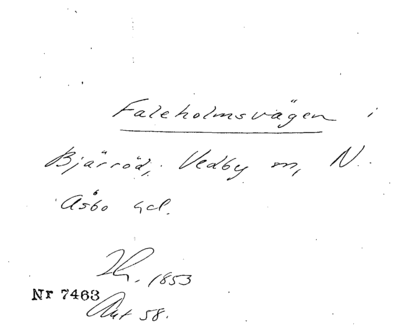 Faleholmsvägen i
Bjärröd, Vedby sn, N.
Åsbo hd.
1853
Nr 7463
Akt 58.